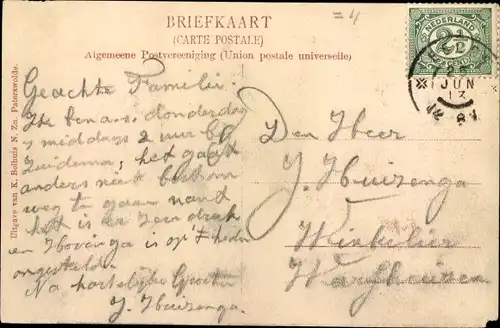 =4
BRIEFKAART
(CARTE POSTALE)
Algemeene Postvereeniging (Union postale universelle)
NEDERLAND
2½
CENT
JUN
13
Uitgave van K. Bolhuis N. Zn. Paterswolde.
Geachte Familie.
Ik ben a.s. donderdag
s middags 2 uur bij
Zuidema; het gaat
anders niet best om
weg te gaan want
het is er zeer druk
en Hovinga is op't heden
ongesteld.
Na hartelijke Groeten
J. Huizenga.
Den Heer
J. Huizenga
Winkelier
Warfhuizen